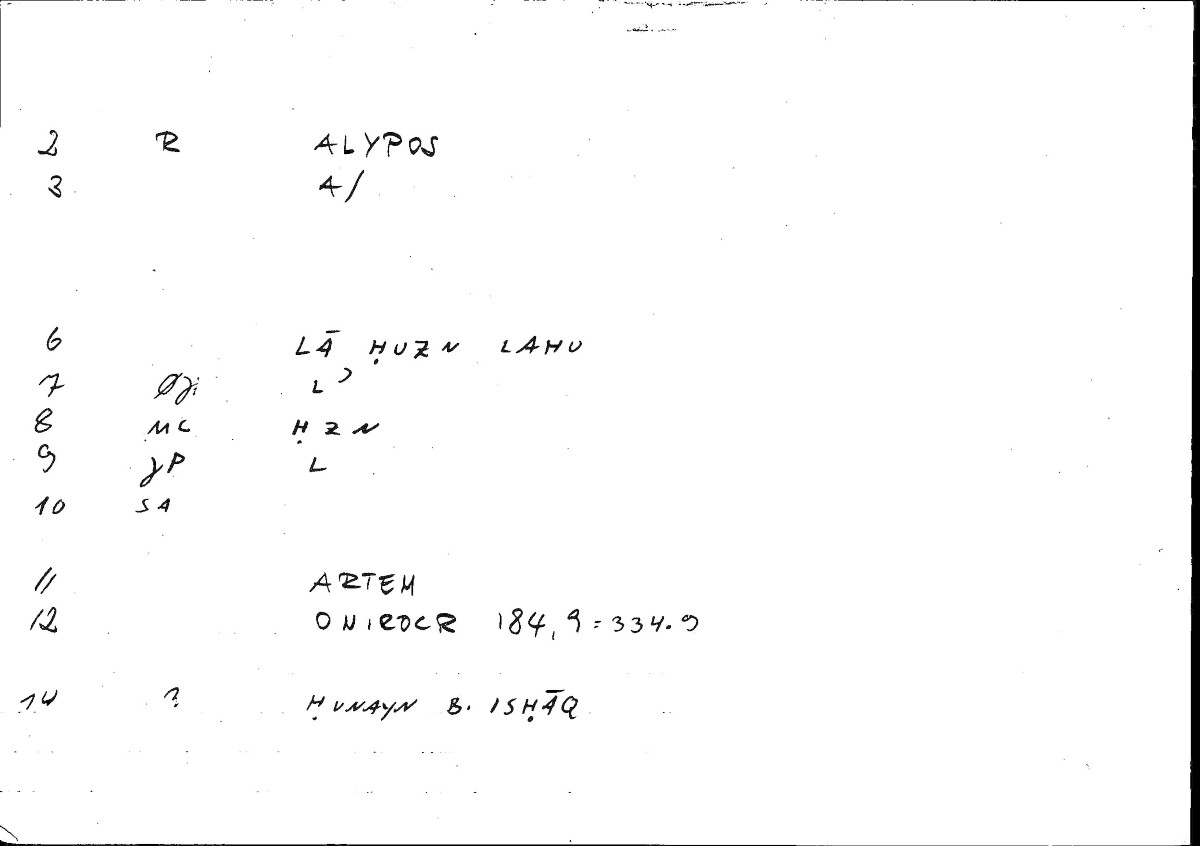 2 R ALYPOS
3 A/
6 LĀ ḤUZN LAHU
7 L ʾ
8 MC ḤZN
9 JP L
10 SA
11 ARTEM
12 ONIROCR 184,9=334.9
14 ? ḤUNAYN B. ISḤĀQ